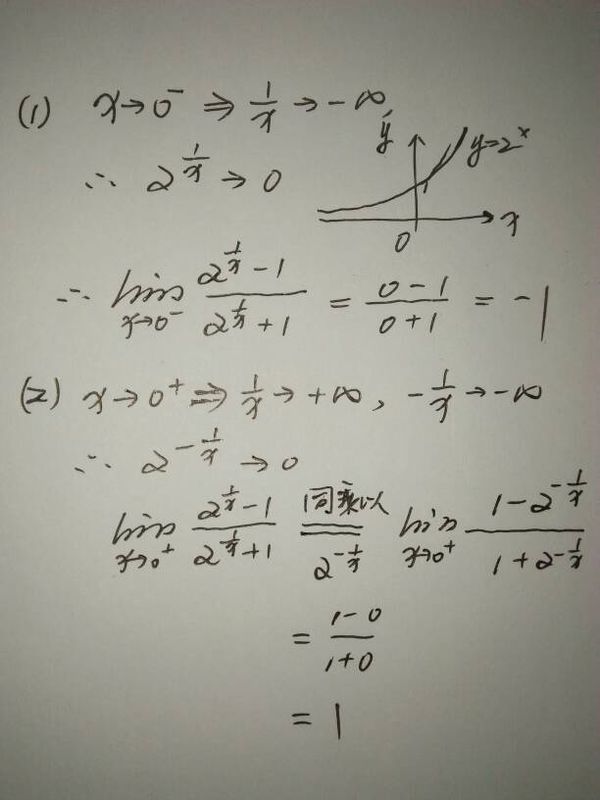 (1) x→0⁻ ⇒ 1/x → -∞
∴ 2^(1/x) → 0
y
y=2^x
x
0
∴ lim_(x→0⁻) (2^(1/x) - 1)/(2^(1/x) + 1) = (0-1)/(0+1) = -1
(2) x→0⁺ ⇒ 1/x → +∞, -1/x → -∞
∴ 2^(-1/x) → 0
lim_(x→0⁺) (2^(1/x) - 1)/(2^(1/x) + 1) 同乘以 2^(-1/x) = lim_(x→0⁺) (1 - 2^(-1/x))/(1 + 2^(-1/x))
= (1-0)/(1+0)
= 1